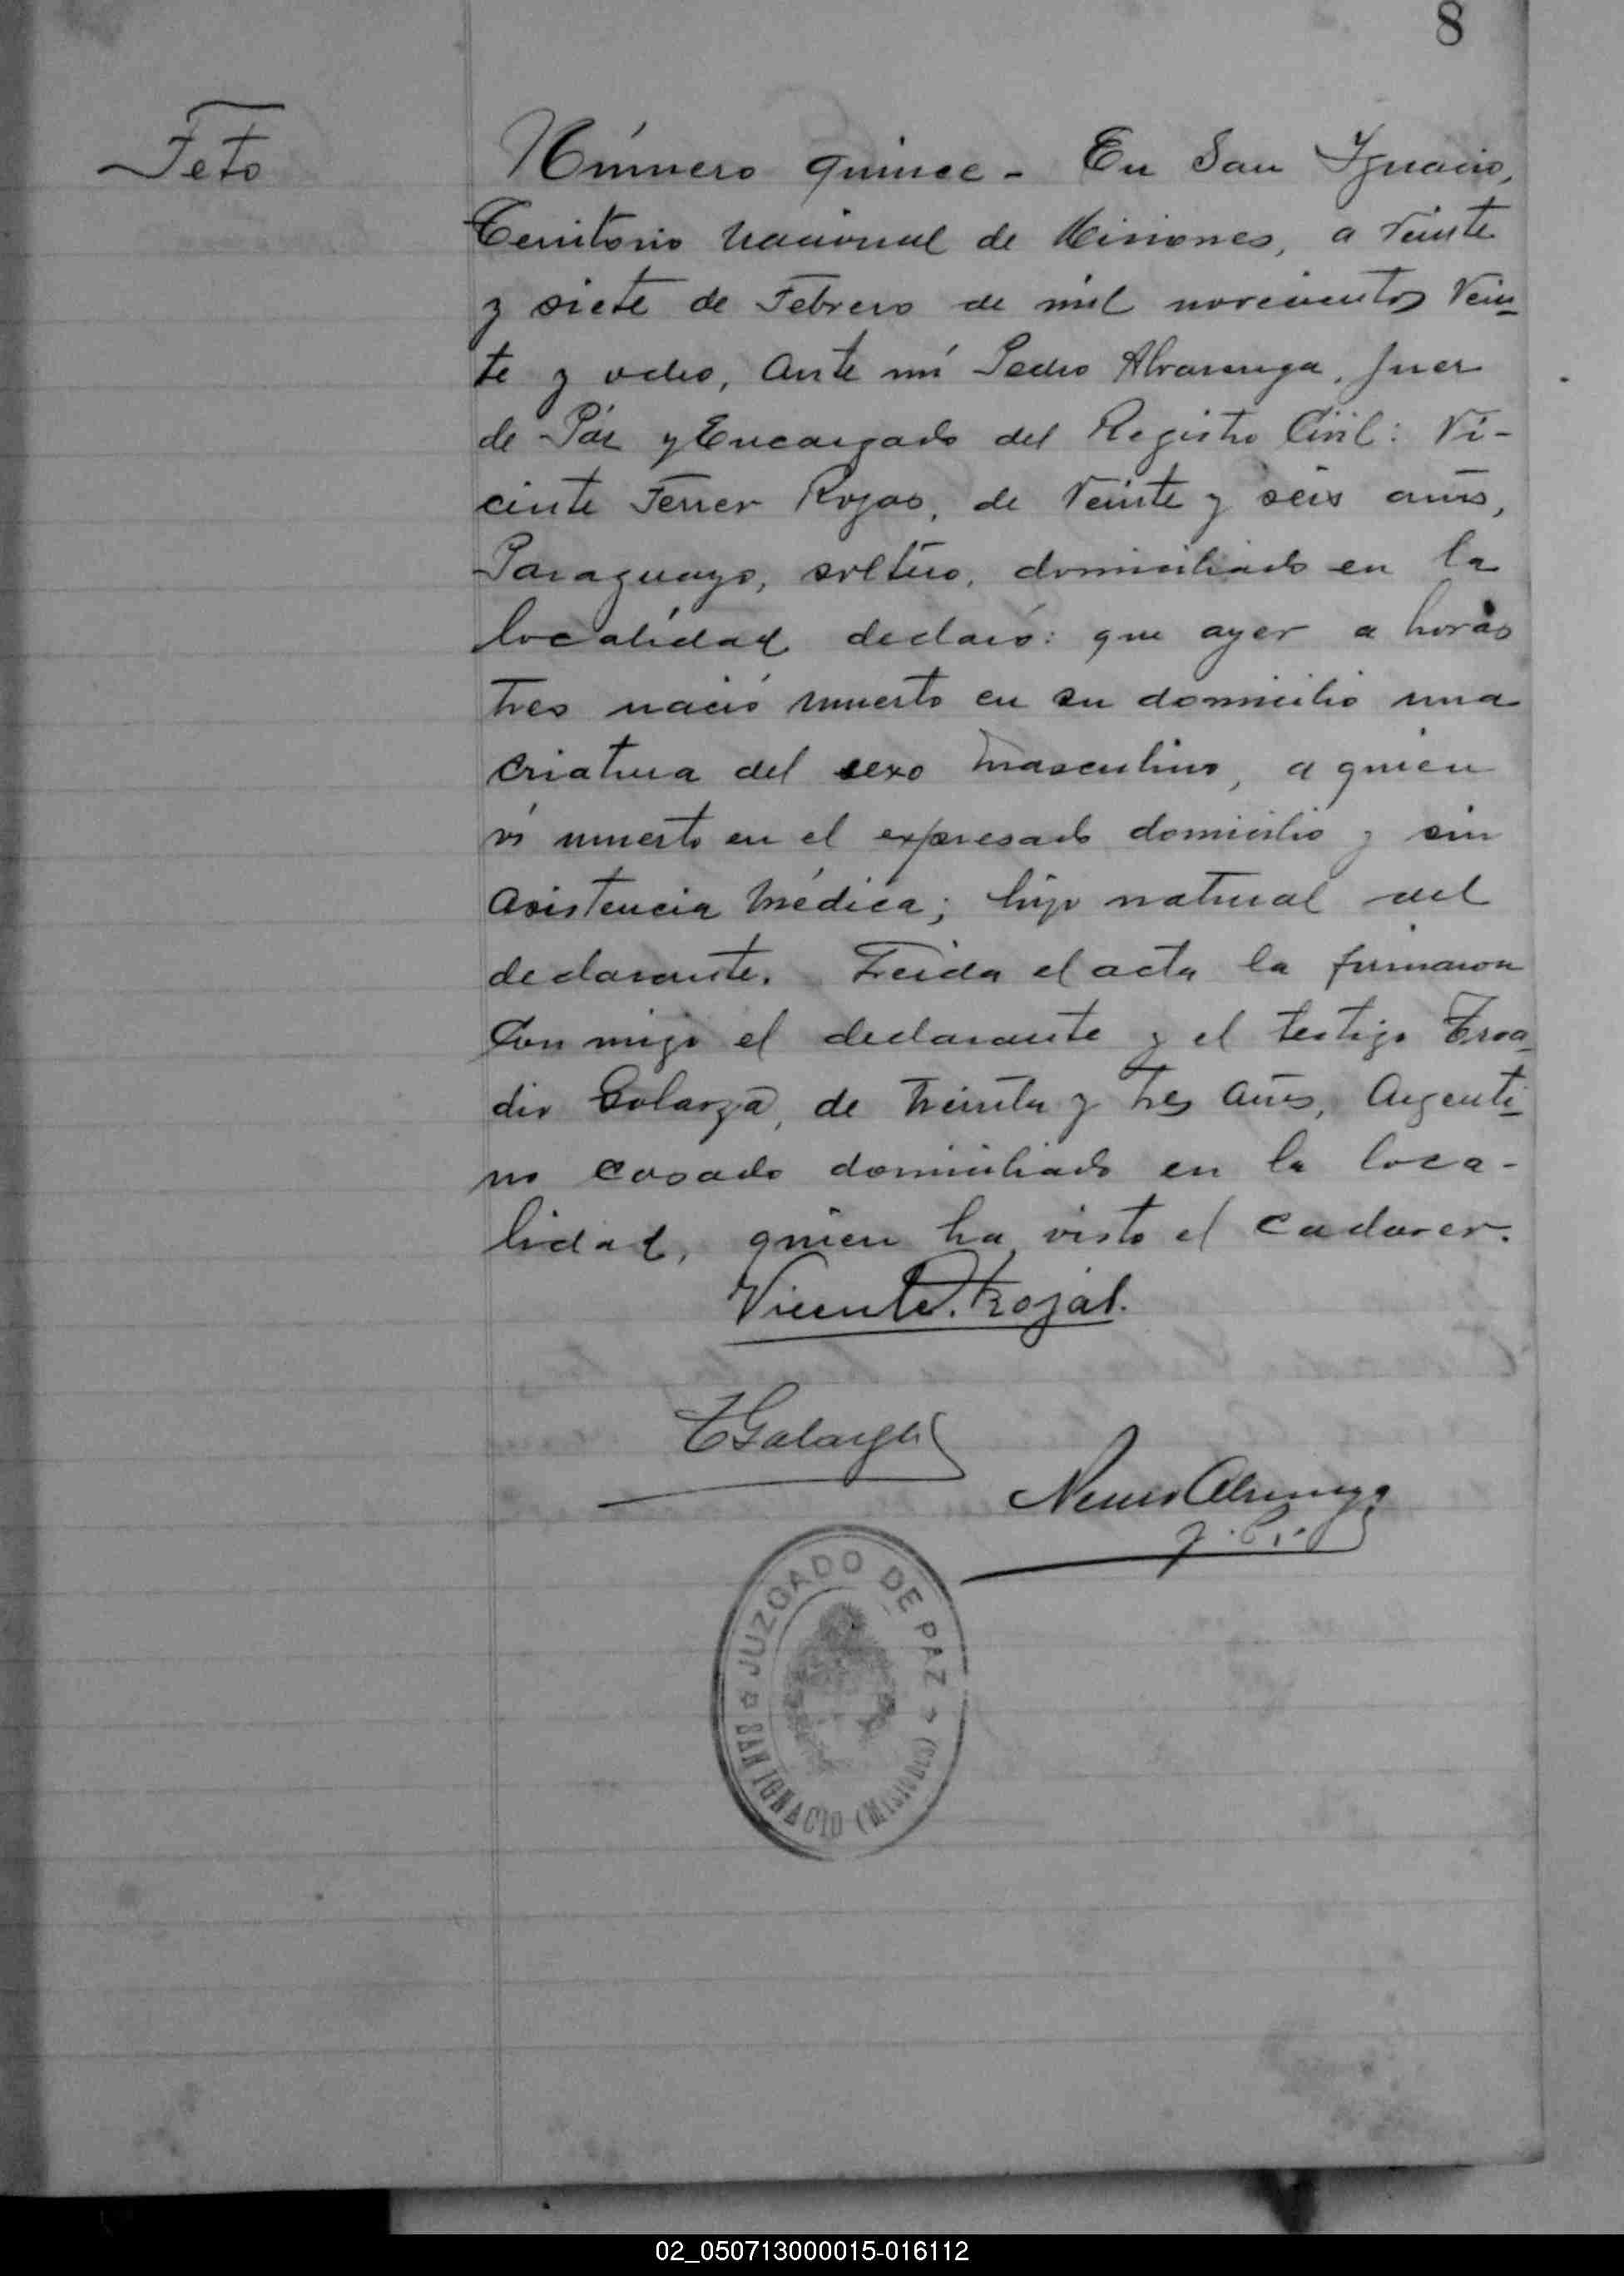 8
Feto
Número quince - En San Ignacio,
Territorio Nacional de Misiones, a veinte
y siete de Febrero de mil novecientos vein_
te y ocho, Ante mí Pedro Alvarenga, Juez
de Páz y Encargado del Registro Civil: Vi-
cente Ferrer Rojas, de veinte y seis años,
Paraguayo, soltero, domiciliado en la
localidad declaró: que ayer a horas
tres nació muerto en su domicilio una
criatura del sexo masculino, a quien
ví muerto en el expresado domicilio y sin
asistencia médica; hijo natural del
declarante. Leida el acta la firmaron
Con migo el declarante y el testigo Troa_
dio Golarza, de treinta y tres años, Argenti_
no casado domiciliado en la loca-
lidad, quien ha visto el cadaver.
Vicente. Rojas.
T Galarza
Alvarenga
J. P.
JUZGADO DE PAZ
SAN IGNACIO (MISIONES)
02_050713000015-016112